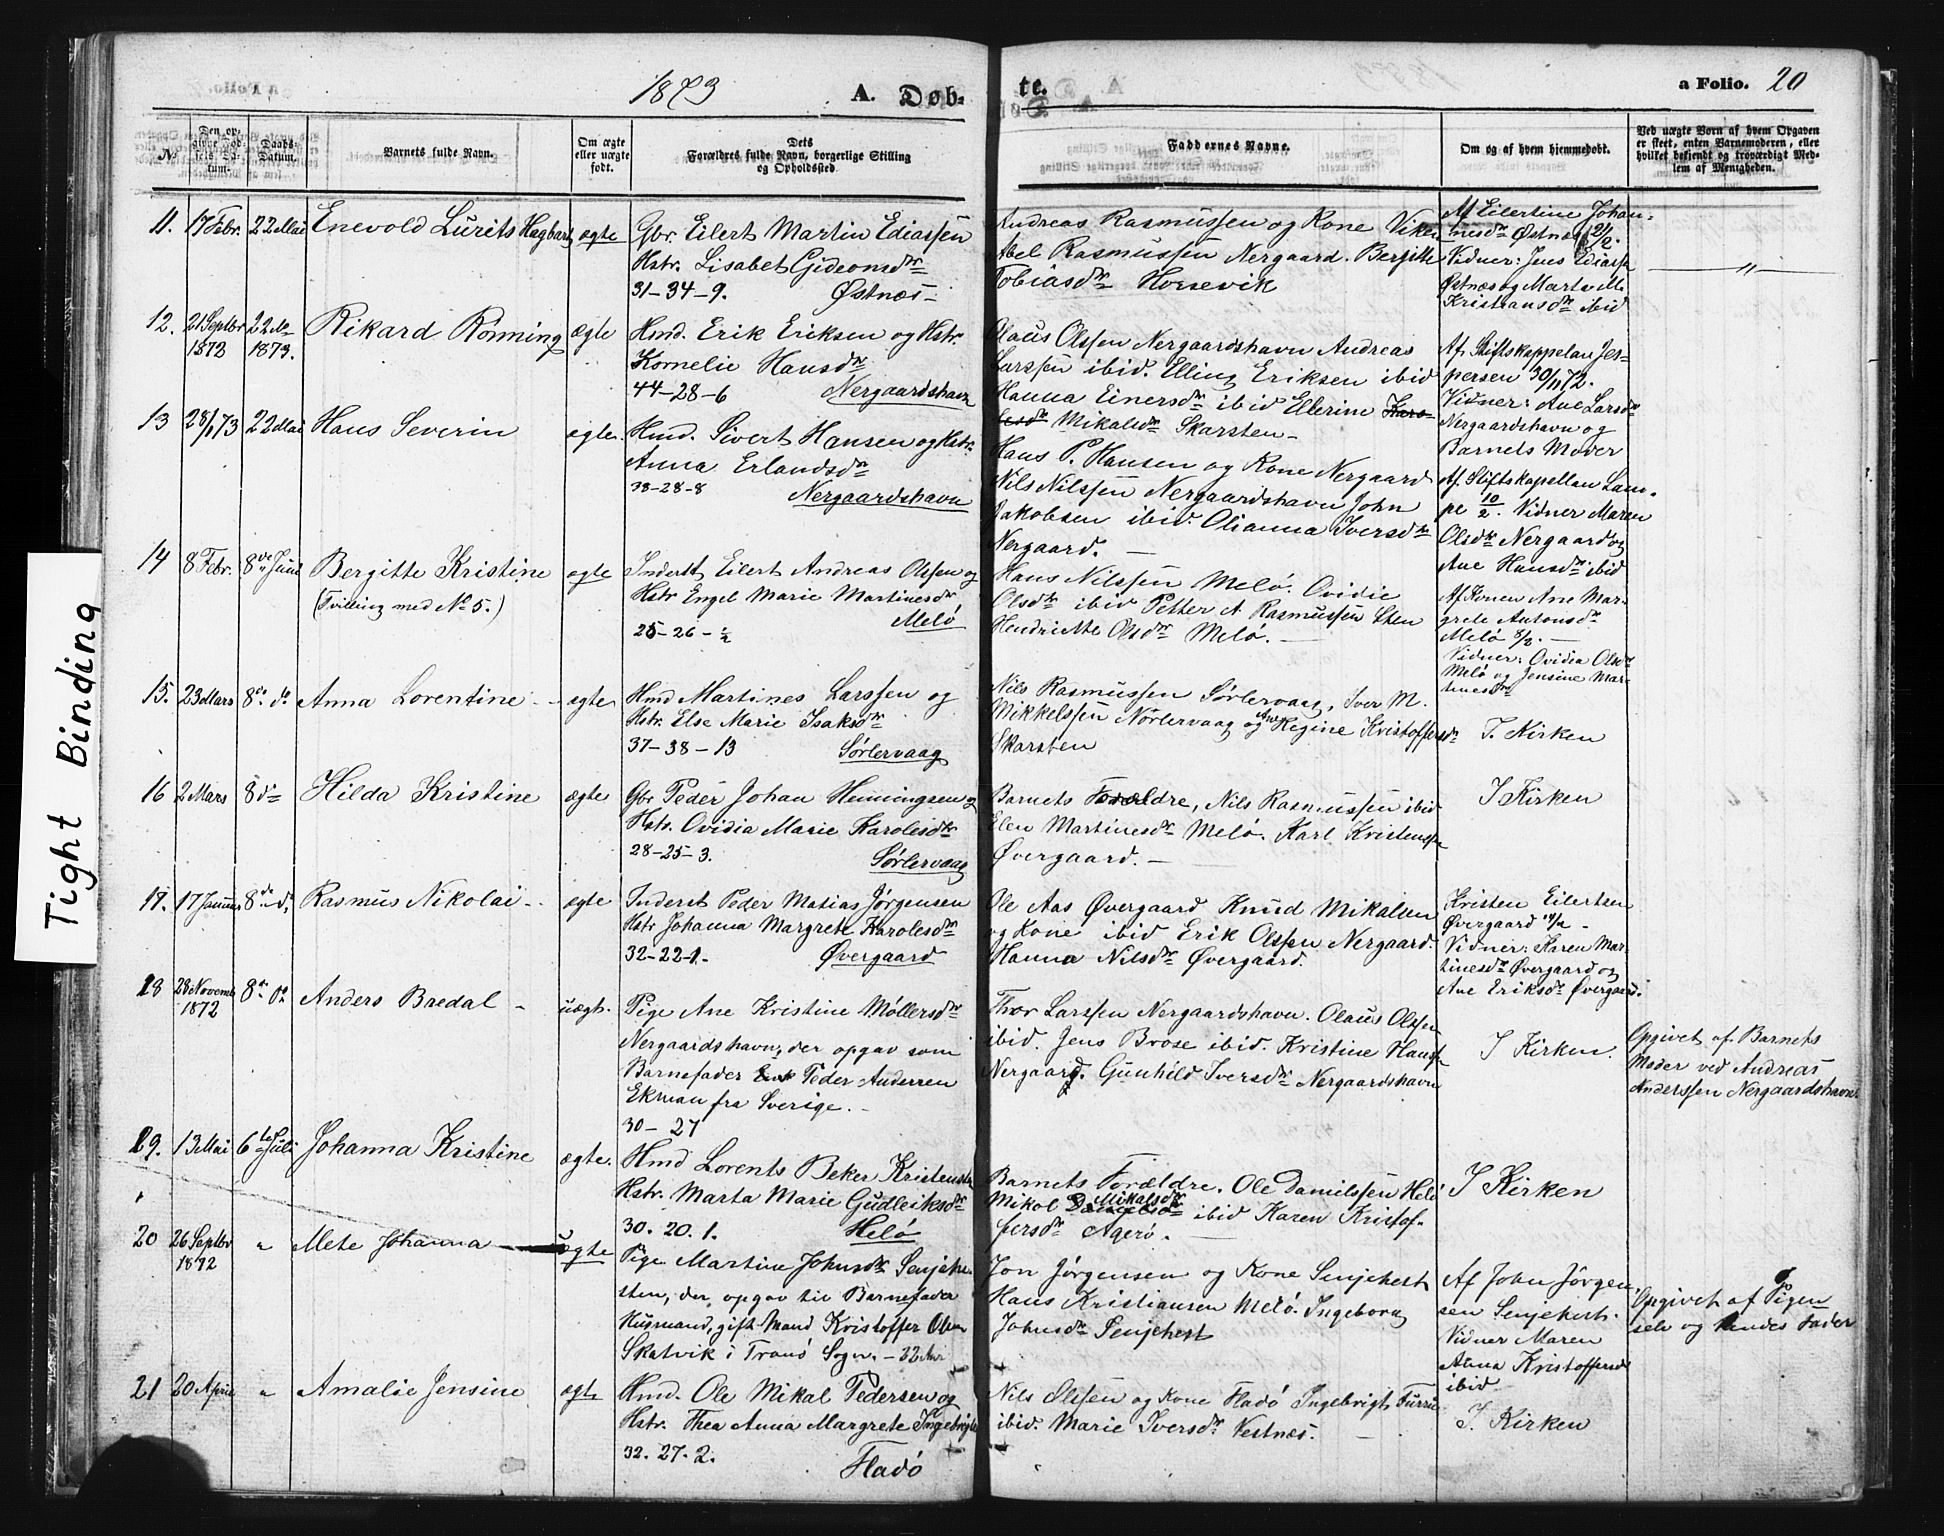 1873
A. Døb-
te.
a Folio. 20
No
Den op-
givne Fød-
sels Da-
tum.
Daabs-
Datum.
Barnets fulde Navn.
Om ægte
eller uægte
født.
Dets
Forældres fulde Navn, borgerlige Stilling
og Opholdssted.
Faddernes Navne.
Om og af hvem hjemmedøbt.
Ved uægte Børn af hvem Opgaven
er skeet, enten Barnemoderen, eller
hvilket bekjendt og troværdigt Med-
lem af Menigheden.
11. 17 Febr. 22 Mai Enevold Lurits Hagbart ægte
Gbr. Eilert Martin Ediassen
Hstr. Lisabet Gideonsdtr
31-34-9. Østnæs
Andreas Rasmussen og Kone Viken
Abel Rasmussen Nergaard. Bergitte
Tobiasdtr Horsevik
Af Eilertine Johan-
nesdtr Østnæs 21/2.
Vidner: Jens Ediassn
Østnæs og Marta M.
Kristiansdtr ibid
"
12. 21 Septbr
1872
22 Mai
1873.
Rikard Rönning ægte
Hmd. Erik Eriksen og Hstr.
Kornelie Hansdtr
44-28-6 Nergaardshavn
Olaus Olssen Nergaardshavn Andreas
Larssen ibid. Elling Eriksen ibid
Hanna Einersdtr ibid Ellerine Karo-
lesdtr Mikalsdtr Skarsten
Af Stiftskappelan Jes-
persen 30/11 72.
Vidner: Ane Larsdtr
Nergaardshavn og
Barnets Moder
13 28/1 73 22 Mai Hans Severin ægte.
Hmd. Sivert Hansen og Hstr.
Anna Erlandsdtr
38-28-8 Nergaardshavn
Hans P. Hansen og Kone Nergaard
Nils Nilssen Nergaardshavn John
Jakobsen ibid. Olianna Iversdtr
Nergaard.
Af Stiftskapellan Lam-
pe 10/2. Vidner Maren
Olsdtr Nergaard og
Ane Hansdtr ibid
14 8 Febr. 8de Juni Bergitte Kristine ægte
(Tvilling med No 5.)
Inderst Eilert Andreas Olssen og
Hstr Engel Marie Martinesdtr
25-26-½ Melö
Hans Nilssen Melö. Ovidie
Olsdtr ibid Petter A. Rasmussen Sten
Hendriette Olsdtr Melö.
Af Konen Ane Mar-
grete Antonsdtr
Melö 8/2.
Vidner: Ovidia Olsdtr
Melö og Jensine Mar-
tinesdtr
15. 23 Mars 8de do Anna Lorentine ægte
Hmd Martines Larssen og
Hstr. Else Marie Isaksdtr
37-38-13 Sørlervaag
Nils Rasmussen Sørlervaag, Iver M.
Mikkelssen Nørlervaag og Ane Regine Kristoffersdtr
Skarsten
I. Kirken
16 2 Mars 8de Hilda Kristine ægte
Gbr Peder Johan Henningsen og
Hstr. Ovidia Marie Karolesdtr
28-25-3. Sørlervaag
Barnets Forældre, Nils Rasmussen ibid
Elen Martinesdtr Melö. Karl Kristenssn
Øvergaard.
I Kirken
17. 17 Januar 8de do Rasmus Nikolai ægte
Inderst Peder Matias Jørgensen
Hstr Johanna Margrete Karolesdtr
32-22-1. Øvergaard
Ole Aas Øvergaard Knud Mikalsen
og Kone ibid Erik Olssen Nergaard.
Hanna Nilsdtr Øvergaard.
Kristen Eilertsen
Øvergaard
Vidner: Karen Mar-
tinesdtr Øvergaard og
Ane Eriksdtr Øvergaard.
18 28 Novemb
1872
8de do Anders Bredal uægt.
Pige Ane Kristine Møllersdtr
Nergaardshavn, der opgav som
Barnefader Peder Andersen
Ekman fra Sverige.
30-27
Thor Larssen Nergaardshavn. Olaus Olssen
ibid. Jens Brose ibid. Kristine Hanssn
Nergaard. Gunhild Iversdtr Nergaardshavn
I Kirken.
Opgivet af Barnets
Moder ved Andreas
Anderssen Nergaardshavn
19. 13 Mai 6te Juli Johanna Kristine ægte.
Hmd Lorents Beker Kristensen
Hstr. Marta Marie Gudleiksdtr
30. 20. 1. Helö
Barnets Forældre. Ole Danielssen Helö
Mikol Danielsdtr Mikalsdtr ibid Karen Kristof-
fersdtr Agerö.
I Kirken
20 26 Septbr
1872
" Mete Johanna uægte
Pige Martine Johnsdtr Senjehe-
sten, der opgav til Barnefader
Husmand, gift Mand Kristoffer Olsen
Skatvik i Tranö Sogn. - 32 Aar
Jon Jørgensen og Kone Senjehest
Hans Kristiansen Melö. Ingeborg
Johnsdtr Senjehest
Af John Jörgen-
sen Senjehest.
Vidner Maren
Anna Kristoffersdtr
ibid
Opgivet af Pigen
selv og hendes Fader
21 20 April " Amalie Jensine ægte
Hmd. Ole Mikal Pedersen og
Hstr. Thea Anna Margrete Ingebrigtsdtr
32. 27. 2. Fladö
Nils Olssen og Kone Fladö Ingebrigt Furru
ibid. Marie Iversdtr Vestnæs.
I. Kirken
Tight Binding